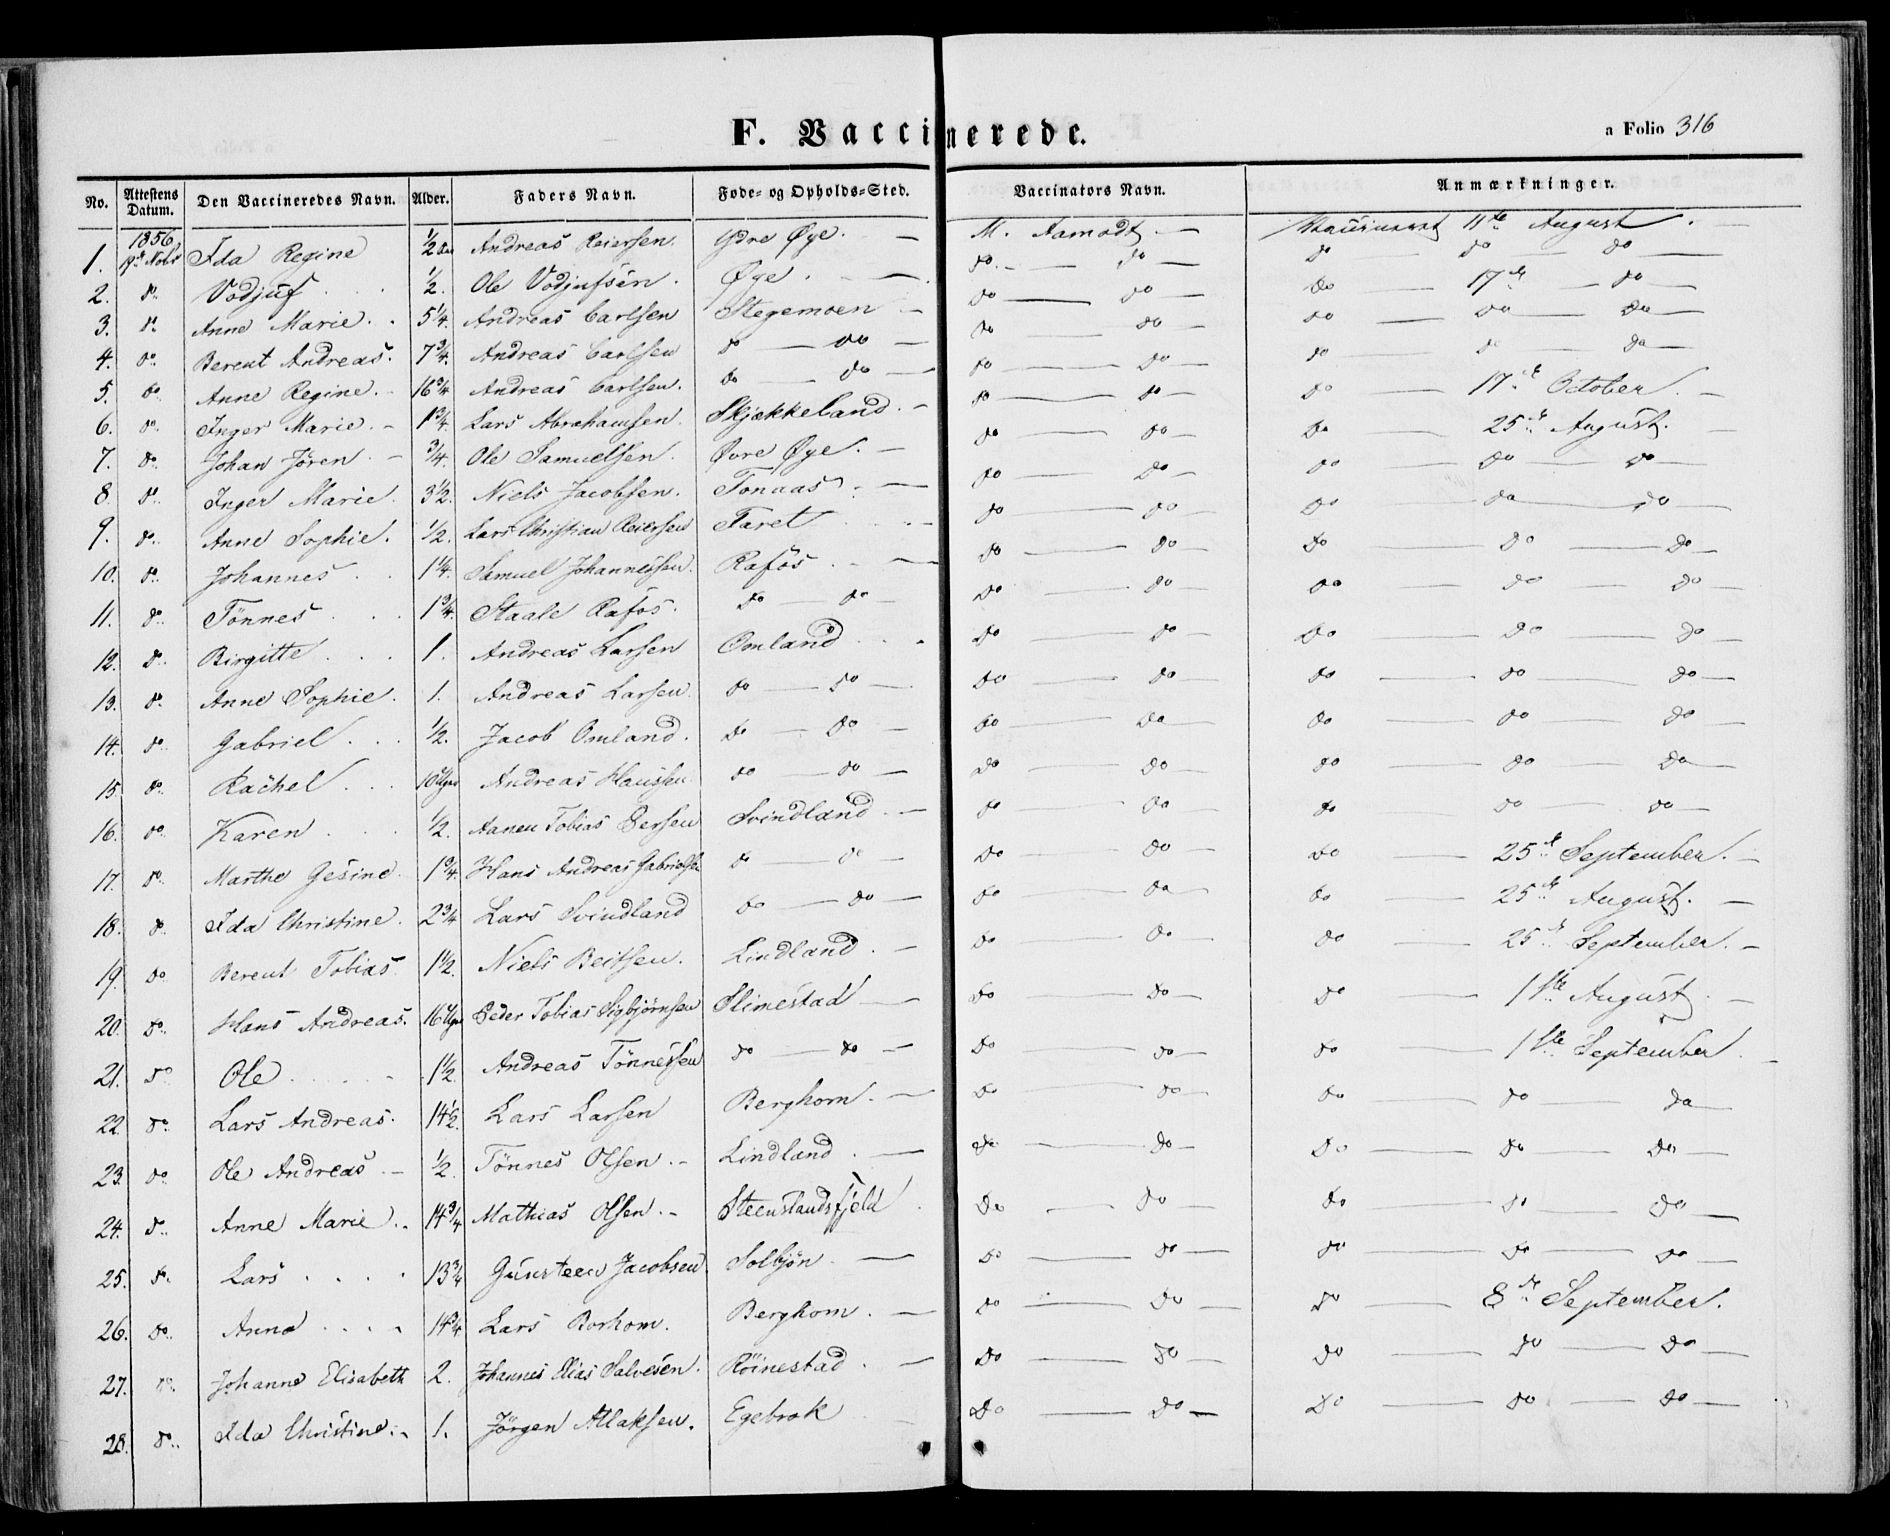 F. Vaccinerede.
a Folio 316
No. | Attestens Datum. | Den Vaccineredes Navn. | Alder. | Faders Navn. | Føde- og Opholds-Sted. | Vaccinators Navn. | Anmærkninger.
1. | 1856 | Ida Regine | 1/2 | Andreas Reiersen. | Ydre Øye. — | M. Aamodt — | Vaccineret 11te August. —
2. | do | Vodjuf | 1/2. | Ole Vodjufsen. | Øye. — | do — do — | do — do — do —
3. | do | Anne Marie. | 5 1/4. | Andreas Carlsen | Stegemoen — | do — do — | do — 17de — do —
4. | do | Berent Andreas. | 7 3/4. | Andreas Carlsen | do — do — | do — do — | do — do — do —
5. | do | Anne Regine. | 16 3/4 | Andreas Carlsen. | do — do — | do — do — | do — do — do —
6. | do | Inger Marie. - | 1 3/4. | Lars Abrahamsen. | Skjækkeland. - | do — do — | do — 17de October. —
7. | do | Johan Jören. - | 3/4. | Ole Samuelsen. | Øvre Øye. — | do — do — | do — 25de August. —
8. | do | Inger Marie. | 3 1/2. | Niels Jacobsen. | Tonaas. — | do — do — | do — do — do —
9. | do | Anne Sophie. | 1/2. | Lars Christian Reiersen | Faret — | do — do — | do — do — do —
10. | do | Johannes | 1 1/4. | Samuel Johannessen. | Rafos. — | do — do — | do — do — do —
11. | do | Tönnes | 1 3/4. | Staale Rafos. | do — do — | do — do — | do — do — do —
12. | do | Birgitte | 1. | Andreas Larsen | Omland | do — do — | do — do — do —
13. | do | Anne Sophie. | 1. | Andreas Larsen. | do — do — | do — do — | do — do — do —
14. | do | Gabriel | 1/2. | Jacob Omland. | do — do — | do — do — | do — do — do —
15. | do | Rachel | 10 Uger | Andreas Hanssen | do — do — | do — do — | do — do — do —
16. | do | Karen | 1/2. | Aanen Tobias Persen | Svindland. — | do — do — | do — do — do —
17. | do | Marthe Gesine. | 1 3/4. | Hans Andreas Gabrielsen | do — do — | do — do — | do — 25de September. —
18. | do | Ida Christine. | 2 3/4 | Lars Svindland | do — do — | do — do — | do — 25de August. —
19. | do | Berent Tobias | 1 1/2. | Niels Beitsen. | Lindland. — | do — do — | do — 25de September. —
20. | do | Hans Andreas. | 16 Uger | Peder Tobias Sigbjørnsen | Slimestad — | do — do — | do — 1ste August. —
21. | do | Ole | 1 1/2 | Andreas Tönnessen | do — do — | do — do — | do — 1ste September. —
22. | do | Lars Andreas. | 14 1/2. | Lars Larsen | Berghom. — | do — do — | do — do — do —
23. | do | Ole Andreas — | 1/2. | Tönnes Olsen. - | Lindland. — | do — do — | do — do — do —
24. | do | Anne Marie. | 14 3/4 | Mathias Olsen. - | Steenslandsfjeld | do — do — | do — do — do —
25. | do | Lars | 13 3/4 | Gunsteen Jacobsen. | Solbjön. — | do — do — | do — do — do —
26. | do | Anne | 14 3/4 | Lars Borhom. | Berghom. — | do — do — | do — 8de September.
27. | do | Johanne Elisabeth | 2. | Johannes Elias Salvesen. | Röinestad. — | do — do — | do — do — do —
28. | do | Ida Christine. - | 1. | Jörgen Atlaksen. | Egebrok | do — do — | do — do — do —